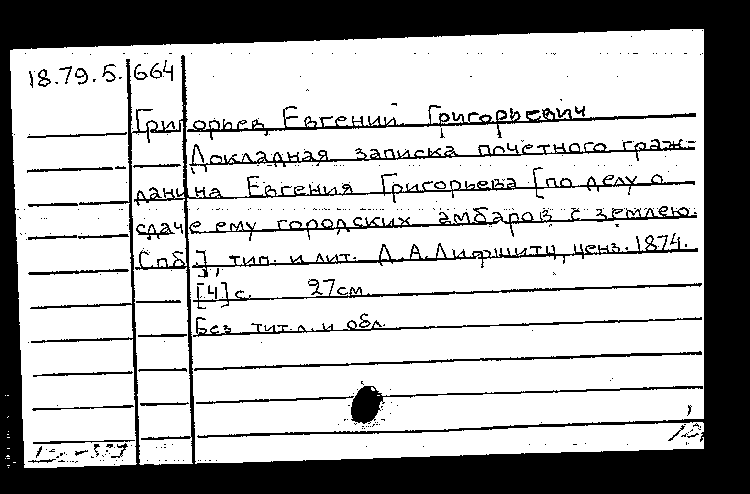 18.79.5. 664
Григорьев, Евгений Григорьевич
Докладная записка почетного граж=
данина Евгения Григорьева [по делу о
сдаче ему городских амбаров с землею.
Спб.], тип. и лит. Д.А.Лифшитц, ценз. 1874.
[4] с. 27см.
Без тит.л. и обл.